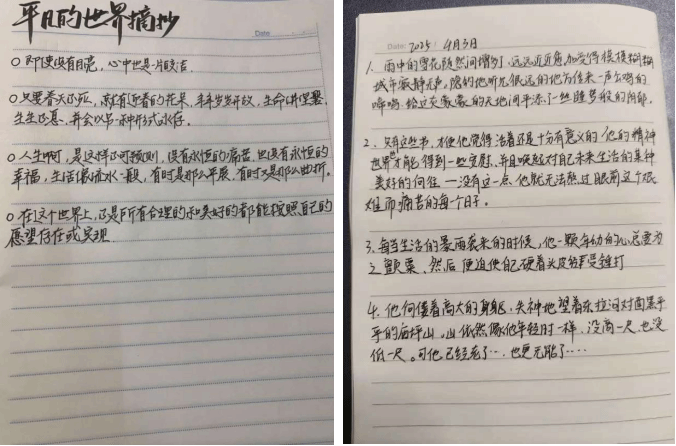 平凡的世界摘抄
Date
○即使没有月亮，心中也是一片皎洁.
○只要春天还在，就有迎春的花朵，年年岁岁开放，生命讲涅槃，
生生不息，并会以另一种形式永存。
○人生啊，是这样不可预测，没有永恒的痛苦，也没有永恒的
幸福，生活像流水一般，有时是那么平展，有时又是那么曲折。
○在这个世界上，不是所有合理的和美好的都能按照自己的
愿望存在或实现
Date: 2025 4月3日
1、雨中的雪花陡然间增多了，远远近近愈加变得模模糊糊
城市寂静无声，隐约地听见很远的地方传来一声公鸡的
啼鸣，给这灰蒙蒙的天地间平添了一丝睡梦般的阴郁.
2、只有这些书，才使他觉得活着还是十分有意义的，他的精神
世界才能得到一些安慰，并且唤起对自己未来生活的某种
美好的向往——没有这一点，他就无法熬过眼前这个艰
难而痛苦的每个日子。
3、每当生活的暴雨袭来的时候，他一颗年幼的心总要为
之颤栗、然后便迫使自己硬着头皮经受捶打
4、他佝偻着高大的身躯，失神地望着东拉河对面黑乎
乎的庙坪山，山依然像他年轻时一样，没高一尺，也没
低一尺。可他已经老了…，也更无能了….